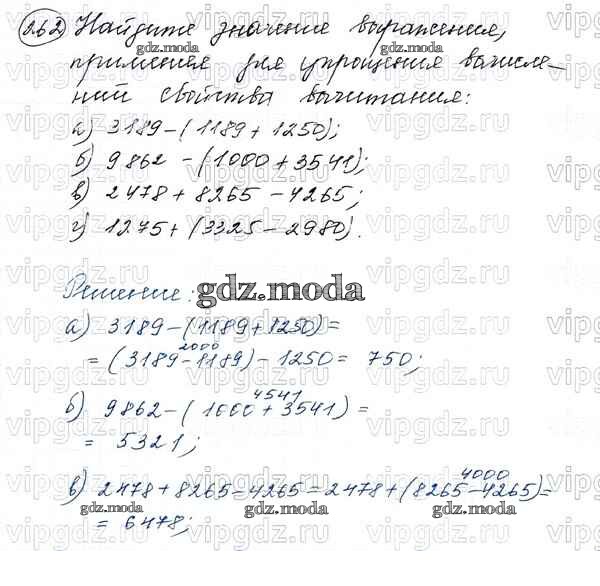 3.62 Найдите значение выражения,
применяя для упрощения вычисле-
ний свойства вычитания:
а) 3189-(1189+1250);
б) 9862 -(1000+3541);
в) 2478+8265-4265;
г) 1275+(3325-2980).
Решение:
gdz.moda
а) 3189-(1189+1250)=
2000
=(3189-1189)-1250= 750;
4541
б) 9862-(1000+3541)=
= 5321;
4000
в) 2478+8265-4265=2478+(8265-4265)=
= 6478;